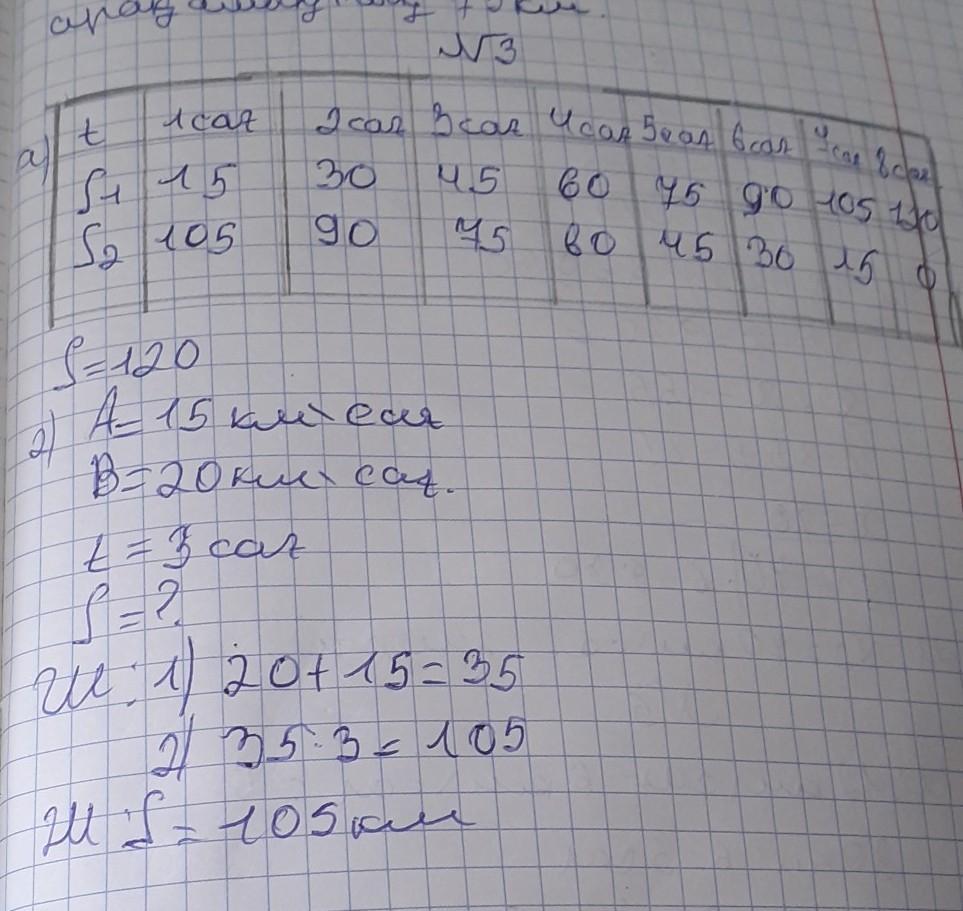 км.
№3
а) t 1 сағ 2 сағ 3 сағ 4 сағ 5 сағ 6 сағ 7 сағ 8 сағ
S1 15 30 45 60 75 90 105 120
S2 105 90 75 60 45 30 15 0
S=120
2) A=15 км\сағ
B=20 км\сағ.
t=3 сағ
S=?
Ш: 1) 20+15=35
2) 35·3=105
Ж: S=105 км